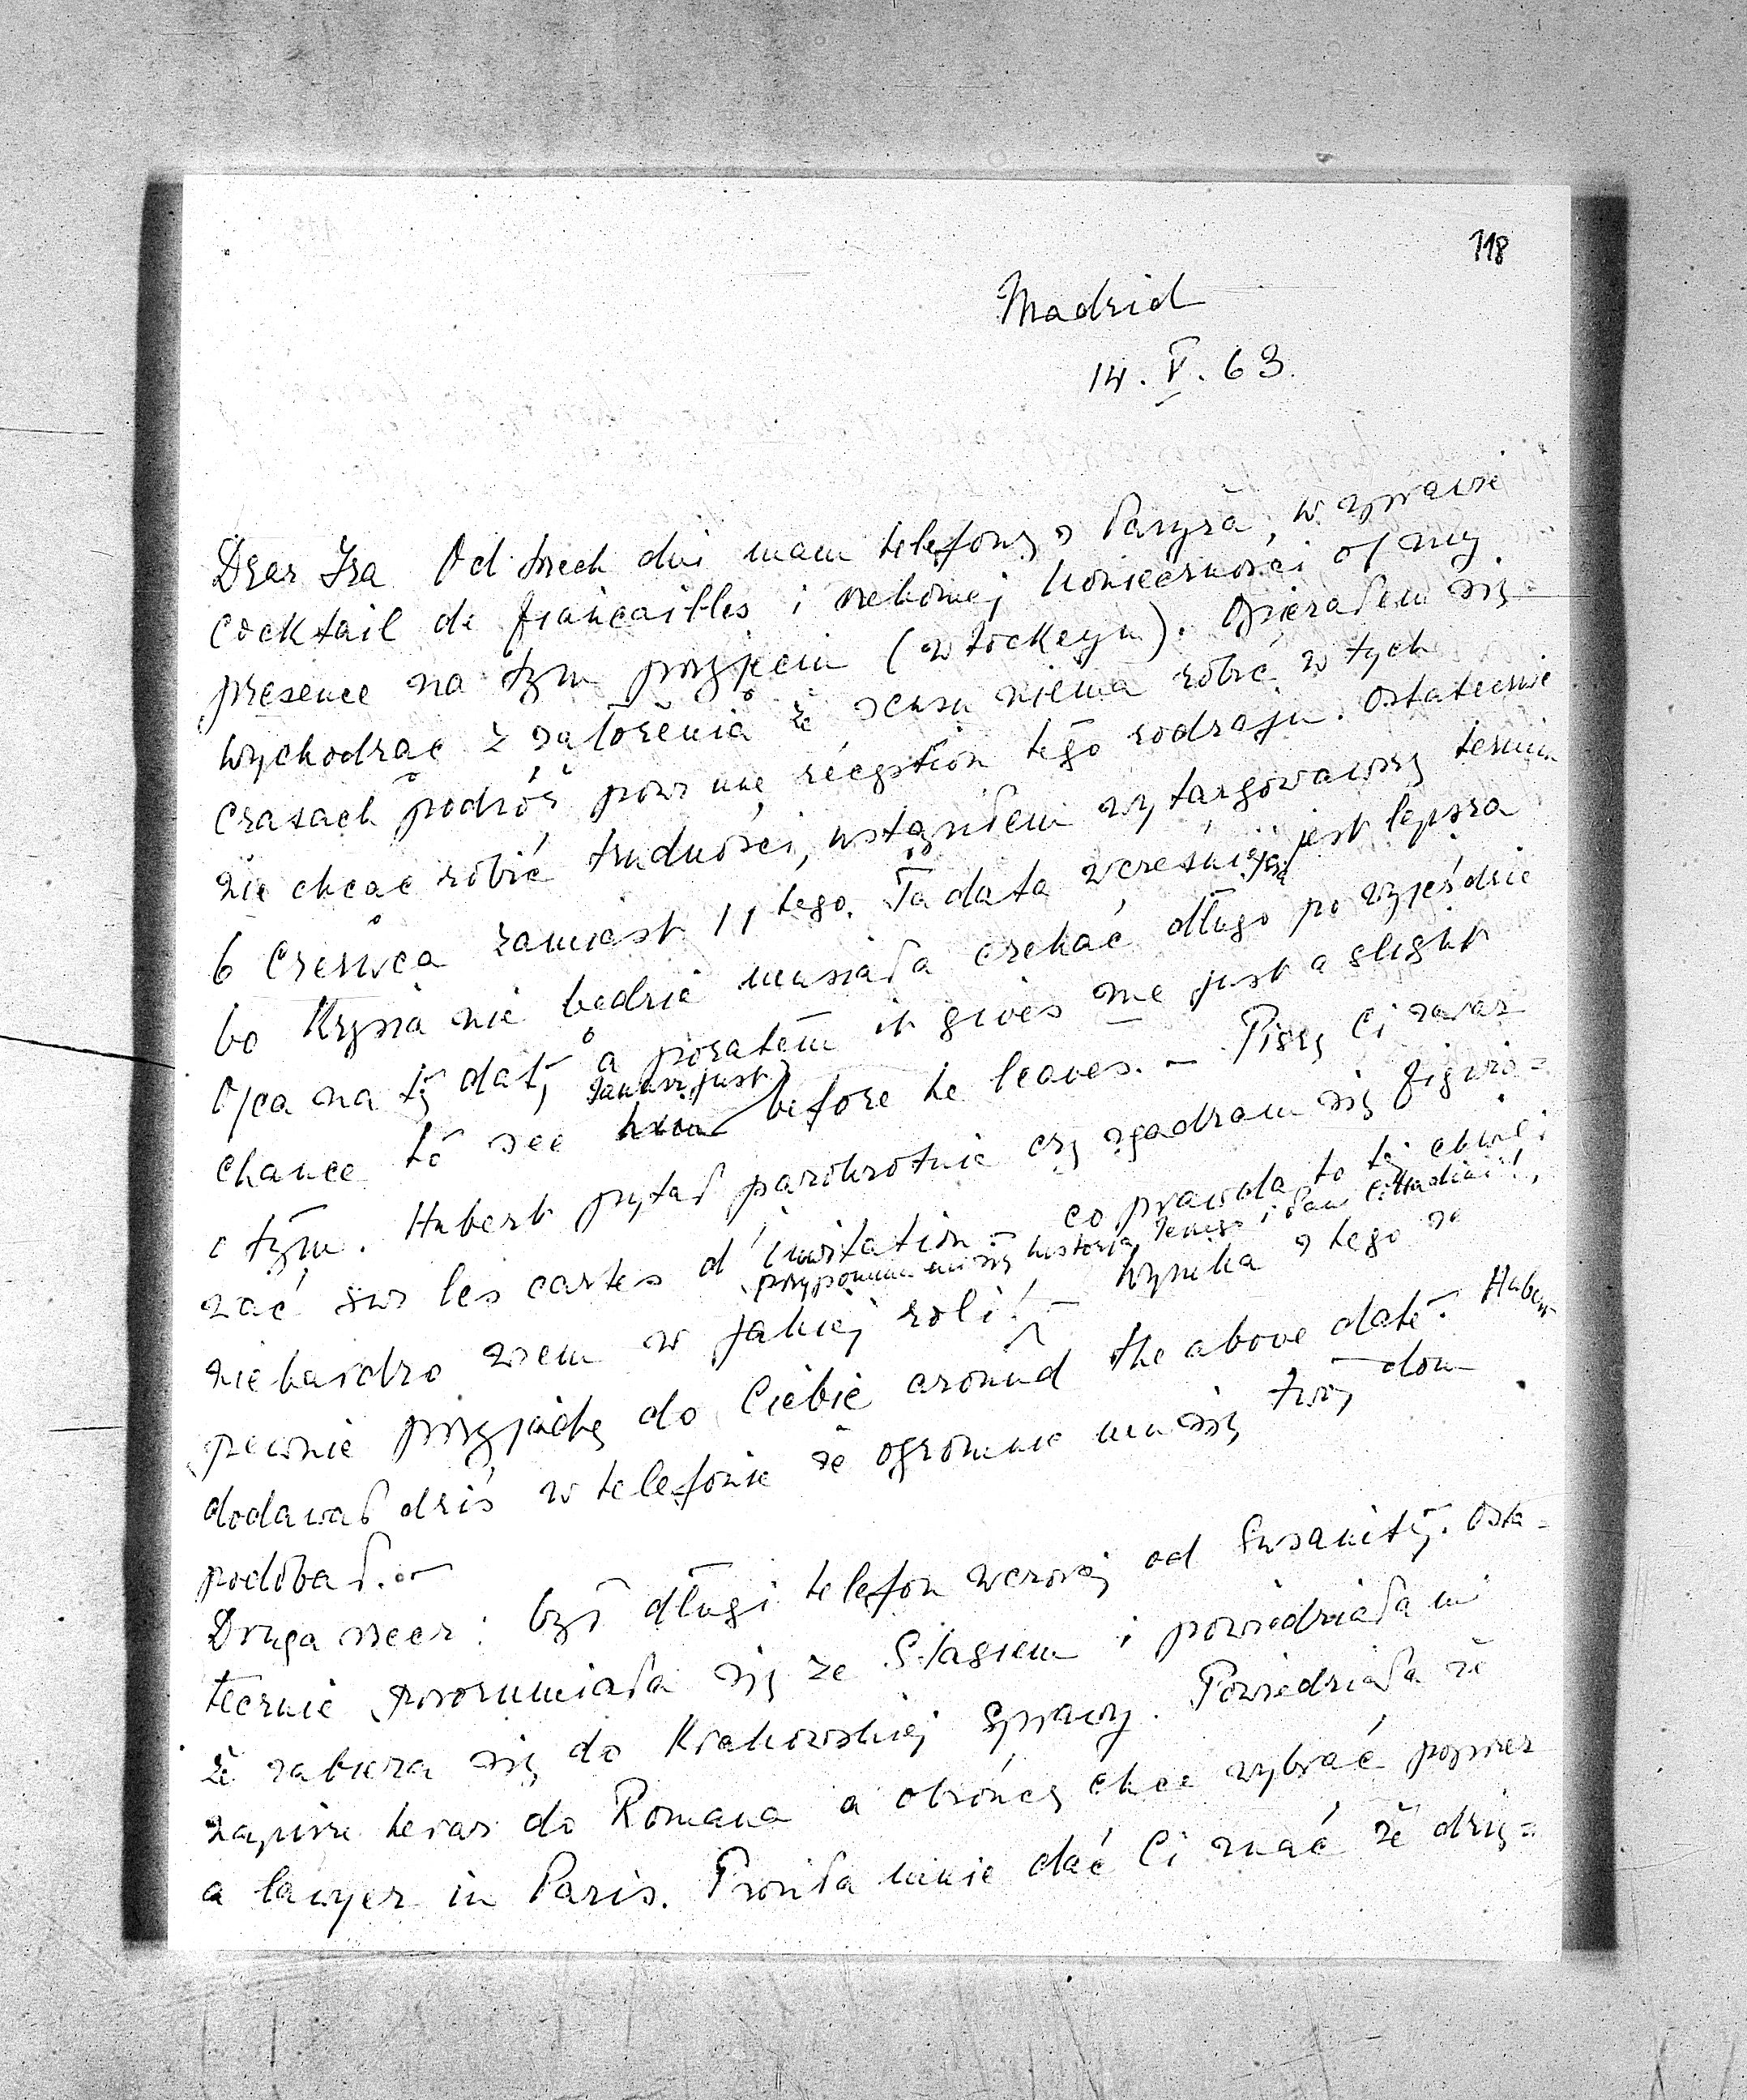 118
Madrid
14. V. 63.
Dear Iza Od trzech dni mam telefony z Paryża, w sprawie
cocktail de fiançailles i rzekomej konieczności of my
presence na tym przyjęciu (w Jockeyu). Opierałem się
wychodząc z założenia że sensu niema robić w tych
czasach podróż pour une réception tego rodzaju. Ostatecznie
nie chcąc robić trudności, ustąpiłem wytargowawszy termin
6 Czerwca zamiast 11 tego. Ta data wcześniejsza jest lepsza
bo Krysia nie będzie musiała czekać długo po wyjeździe
Ojca na tę datę, a pozatem it gives me just a slight
chance to see Janusz just before he leaves. – Piszę Ci zaraz
o tym. Hubert pytał parokrotnie czy zgadzam się figuro=
zać sur les cartes d'invitation – co prawda to tej chwili
przypomina mi się historia Jenego i Pani Cittadini!,
niebardzo wiem w jakiej roli! – Wynika z tego że
pewnie przyjadę do Ciebie around the above date. Hubert
dodawał dziś w telefonie że ogromnie mu się twój dom
podobał. –
Druga rzecz: był długi telefon wczoraj od Susanity. Osta-
tecznie porozumiała się ze Stasiem i powiedziała mi
że zabiera się do Krakowskiej sprawy. Powiedziała że
zapisze teraz do Romana a obrońcę chce wybrać poprzez
a lawyer in Paris. Prosiła mnie dać Ci znać że dzię=